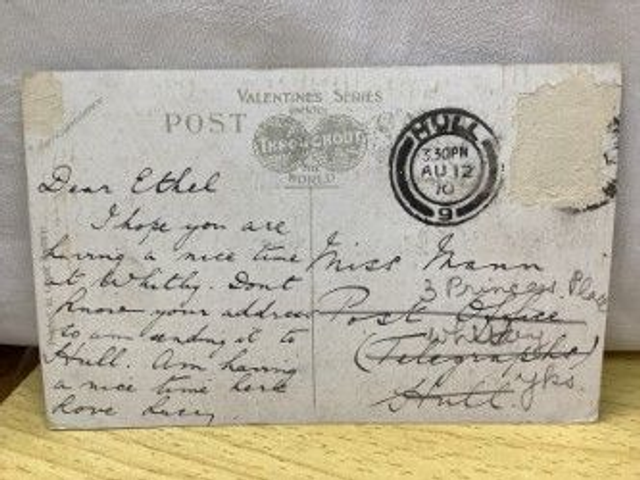 VALENTINE'S SERIES
FAMOUS
POST
THROUGHOUT
THE
WORLD
HULL
3.30PM
AU 12
10
9
Dear Ethel
I hope you are
having a nice time
at Whitby. Dont
know your address
so am sending it to
Hull. Am having
a nice time here
Love Lucy.
Miss Mann
3 Princess Place
Post Office
Whitby
(Telegraphs)
Yks.
Hull.